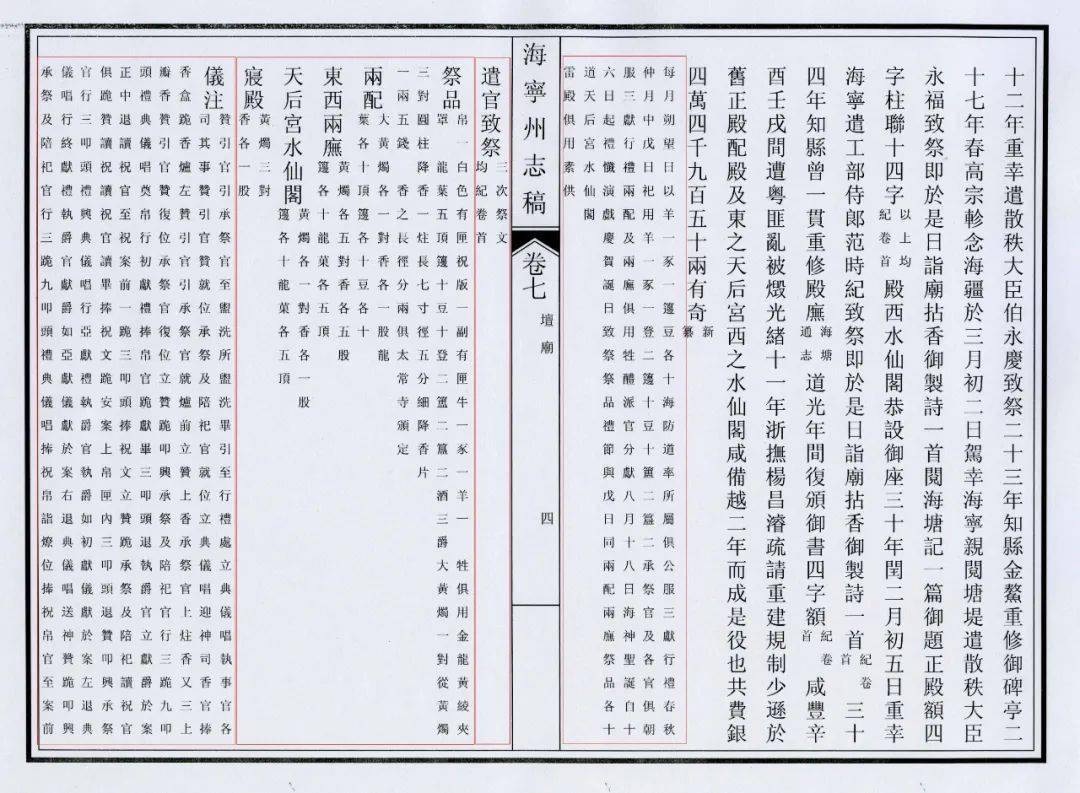 十二年重幸遣散秩大臣伯永慶致祭二十三年知縣金鰲重修御碑亭二
十七年春高宗軫念海疆於三月初二日駕幸海寧親閱塘堤遣散秩大臣
永福致祭即於是日詣廟拈香御製詩一首閱海塘記一篇御題正殿額四
字柱聯十四字以上均紀卷首殿西水仙閣恭設御座三十年閏二月初五日重幸
海寧遣工部侍郎范時紀致祭即於是日詣廟拈香御製詩一首紀卷首三十
四年知縣曾一貫重修殿廡海塘通志道光年間復頒御書四字額紀卷首咸豐辛
酉壬戌間遭粵匪亂被燬光緒十一年浙撫楊昌濬疏請重建規制少遜於
舊正殿配殿及東之天后宮西之水仙閣咸備越二年而成是役也共費銀
四萬四千九百五十兩有奇新纂
每月朔望日以羊一豕一籩豆各十海防道率所屬俱公服三獻行禮春秋
仲月中戊日祀用羊一豕一登二籩十豆十簠二簋二承祭官及各官俱朝
服三獻行禮兩配及兩廡俱用牲醴派官分獻八月十八日海神聖誕自十
六日起禮懺演戲慶賀誕日致祭祭品禮節與戊日同兩配兩廡祭品各十
道天后宮水仙閣
雷殿俱用素供
海寧州志稿
卷七
壇廟
四
遣官致祭三次祭文均紀卷首
祭品帛一白色有匣祝版一副有匣牛一豕一羊一牲俱用金龍黃綾夾
罩龍葉五頂籩十豆十登二簠二簋二酒三爵大黃燭一對從黃燭
三對圓柱降香一炷長七寸徑五分細降香片
一兩五錢香之長徑分兩俱太常寺頒定
兩配大黃燭各一對香各一股龍
葉各十頂籩各十豆各十
東西兩廡黃燭各五對香各五股
籩各十龍菓各五頂
天后宮水仙閣黃燭各一對香各一股
籩各十龍菓各五頂
寢殿黃燭三對
香各一股
儀注贊引官引承祭官至盥洗所盥洗畢引至行禮處立典儀唱執事官各
司其事贊引官贊就位承祭及陪祀官就位立典儀唱迎神司香官捧
香盒跪香爐左贊引官引承祭官就爐前立贊上香承祭官上炷香又三上
瓣香贊引官贊復位承祭官復位立贊跪叩興承祭及陪祀官行三跪九叩
頭禮典儀唱奠帛行初獻禮捧帛官跪獻畢三叩頭退執爵官立獻爵於案
正中退讀祝官至祝案前一跪三叩頭捧祝文立贊跪承祭及陪祀讀祝官
俱跪贊讀祝讀畢捧祝文跪安案上帛匣內三叩頭退贊叩興承祭
官行三叩頭禮興典儀唱行亞獻禮執爵官執爵如初獻儀獻於案左退典
儀唱行終獻禮執爵官獻爵如亞獻儀獻於案右退典儀唱送神贊跪叩興
承祭及陪祀官行三跪九叩頭禮典儀唱捧祝帛詣燎位捧祝帛官至案前